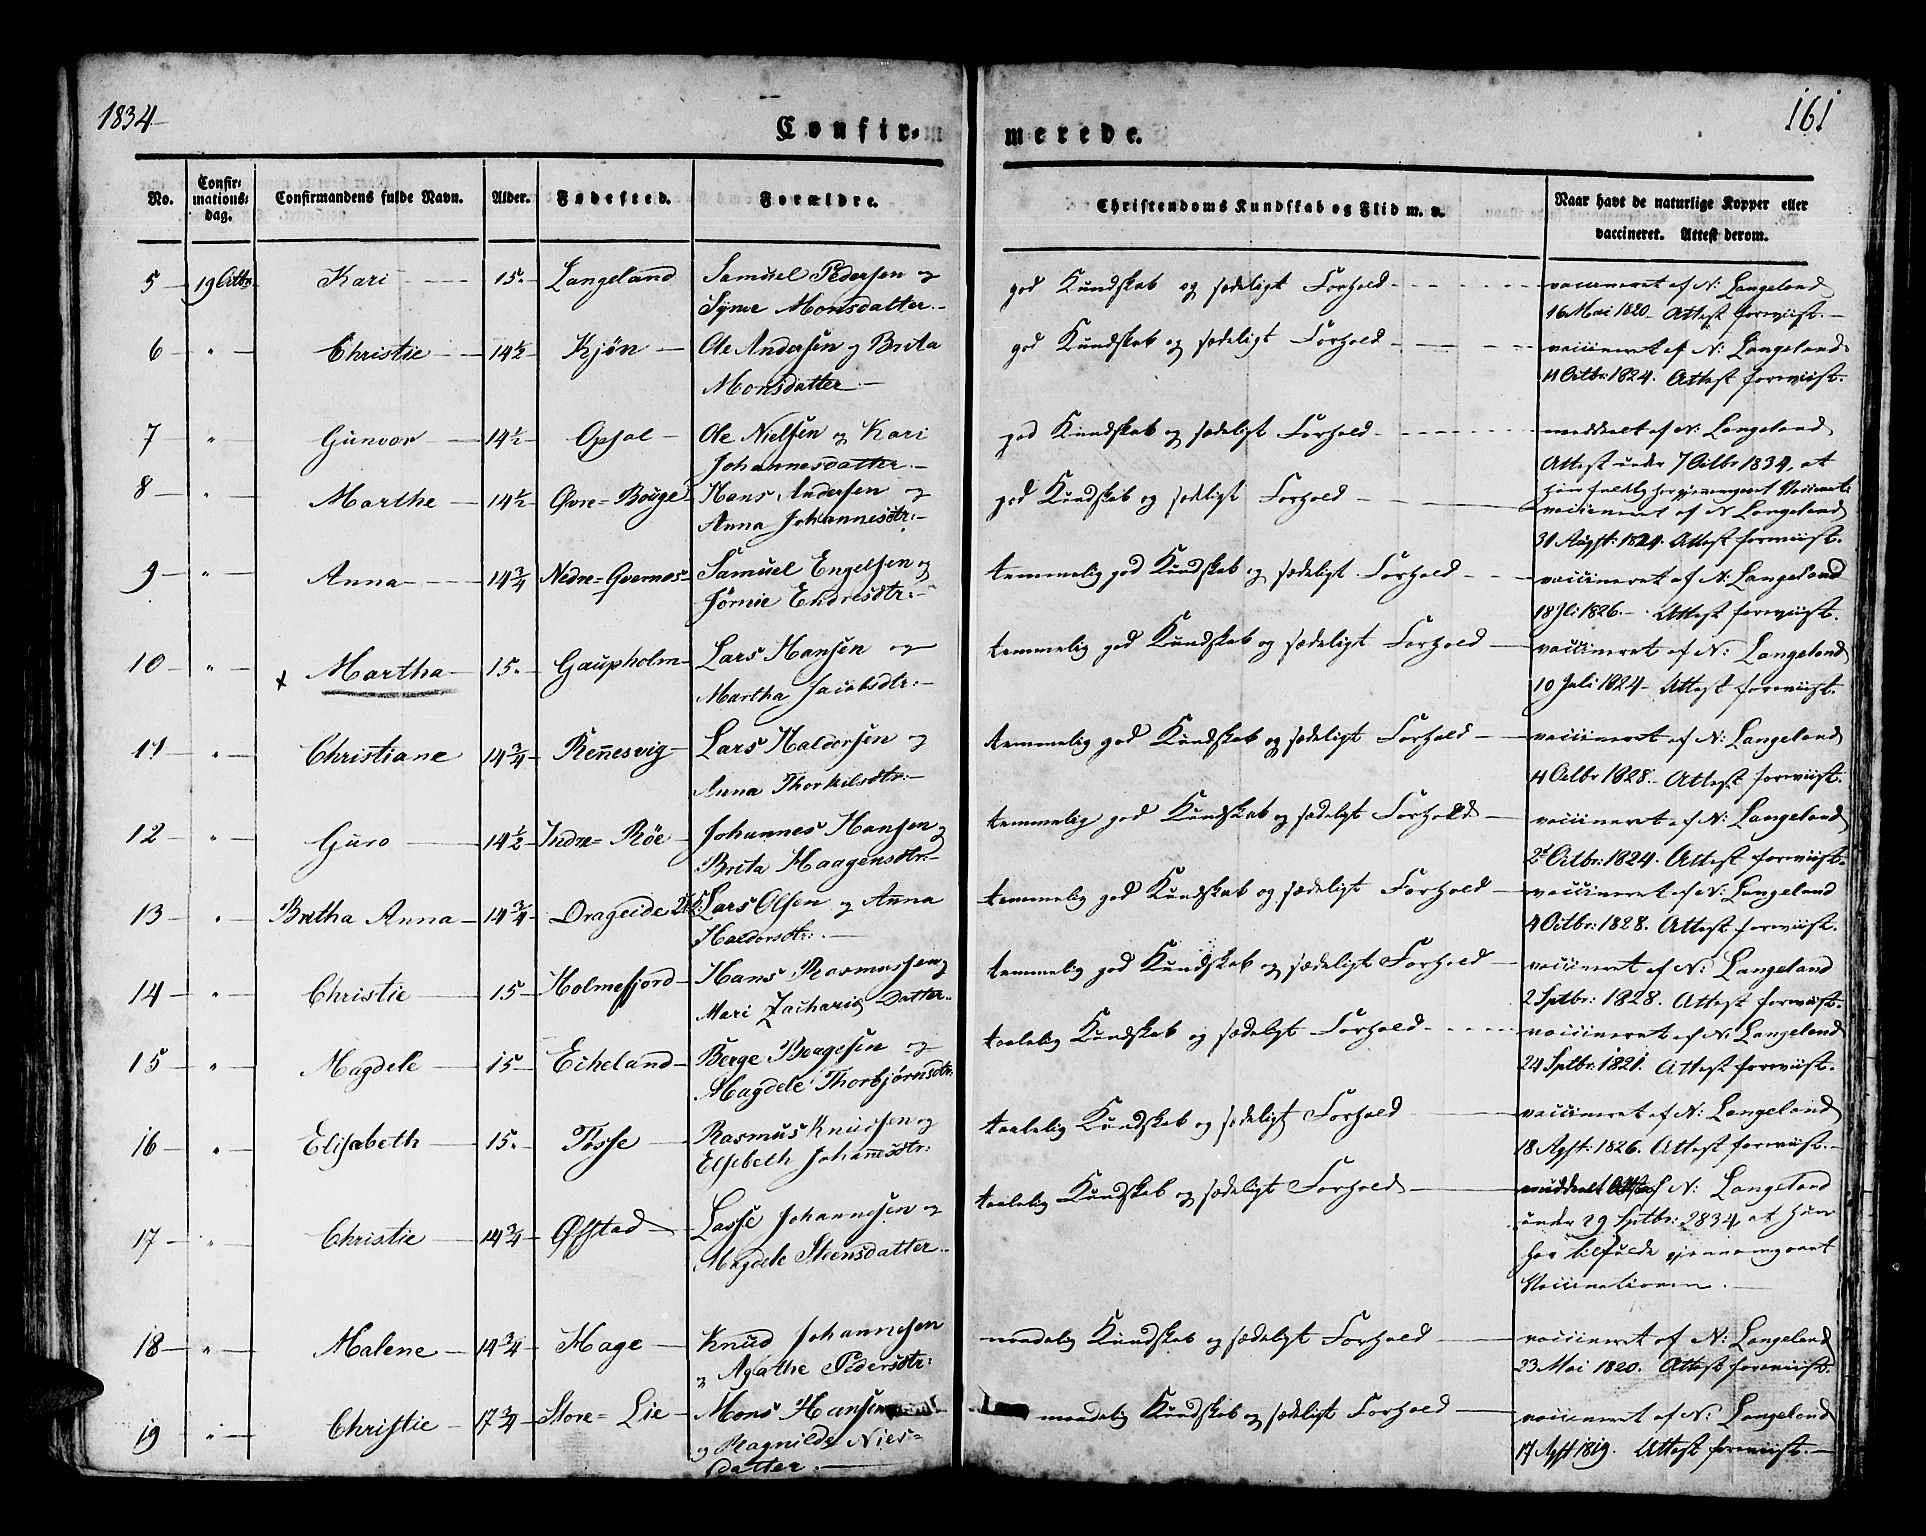 1834
161
Confir-merede.
No.
Confir-
mations-
dag.
Confirmandens fulde Navn.
Alder.
Fødested.
Forældre.
Christendoms Kundskab og Flid m. v.
Naar havt de naturlige Kopper eller
vaccineret. Attest derom.
5 19 Octbr Kari 15. Langeland Samuel Pedersen og god Kundskab og sædeligt Forhold vaccineret af N: Langeland
Monsdatter. 16 Mai 1820 Attest forevist.
6 " Christie 14½ Kjøn Ole Andersen og Brita god Kundskab og sædeligt Forhold vaccineret af N: Langeland
Monsdatter. 11 Octbr: 1824. Attest forevist.
7 " Gunvor 14½ Opsal Ole Nielsen og Kari god Kundskab og sædeligt Forhold meddeelt af N: Langeland
Johannesdatter. Attest under 7 Octbr 1834, at
hun
8 " Marthe 14½ Øvre=Bouge Hans Andersen og god Kundskab og sædeligt Forhold vaccineret af N Langeland
Anna Johannesdtr: 31 Augst: 1824. Attest forevist.
9 " Anna 14¾ Nedre= Samuel Engelsen og temmelig god Kundskab og sædeligt Forhold vaccineret af N: Langeland
Endresdtr: 18 Jli 1826. Attest foreviist.
10 " x Martha 15. Gaupholm Lars Hansen og temmelig god Kundskab og sædeligt Forhold vaccineret af N: Langeland
Martha Jacobsdtr: 10 Juli 1824 Attest foreviist.
11 " Christiane 14¾ Rennesvig Lars Haldorsen og temmelig god Kundskab og sædeligt Forhold vaccineret af N: Langeland
Anna Thorkilsdtr: Octbr 1828. Attest foreviist.
12 " Guro 14½ Indre= Røe Johannes Hansen og temmelig god Kundskab og sædeligt Forhold vaccineret af N: Langeland
Brita Haagensdtr: Octbr: 1824. Attest foreviist.
13 " Bretha Anna 14¾ Drageide Lars Olsen og Anna temmelig god Kundskab og sædeligt Forhold vaccineret af N: Langeland
Haldorsdtr: 4 Octbr: 1828. Attest foreviist.
14 " Christie 15 Holmefjord Hans Rasmussen og temmelig god Kundskab og sædeligt Forhold vaccineret af N: Langeland
Mari Zacharias Datter. 2 Sptbr: 1828. Attest foreviist.
15 " Magdele 15 Echeland Berge Bergesen og taalelig Kundskab og sædeligt Forhold vaccineret af N: Langeland
Magdele Thorbjørnsdtr: 24 Sptbr: 1821. Attest foreviist.
16 " Elisabeth 15. Tosse Rasmus Knudsen og taalelig Kundskab og sædeligt Forhold vaccineret af N: Langeland
Elsebeth Johannesdtr: 18 Agst: 1826. Attest foreviist.
17 " Christie 14¾ Øfstad Lasse Johannesen og taalelig Kundskab og sædeligt Forhold meddeelt Attest af N: Langeland
Magdele Steensdatter. under 29 Sptbr: 2834, at hun
har tilfulde gjennemgaaet
Vaccinationen.
18 " Malene 14¾ Hage Knud Johannesen maadelig Kundskab og sædeligt Forhold vaccineret af N: Langeland
og Agathe Pedersdtr: 23 Mai 1820. Attest foreviist.
19 " Christie 17¾ Store= Lie Mons Hansen maadelig Kundskab og sædeligt Forhold vaccineret af N: Langeland
og Ragnilde Niels=
datter. 17 Agst 1819. Attest foreviist.